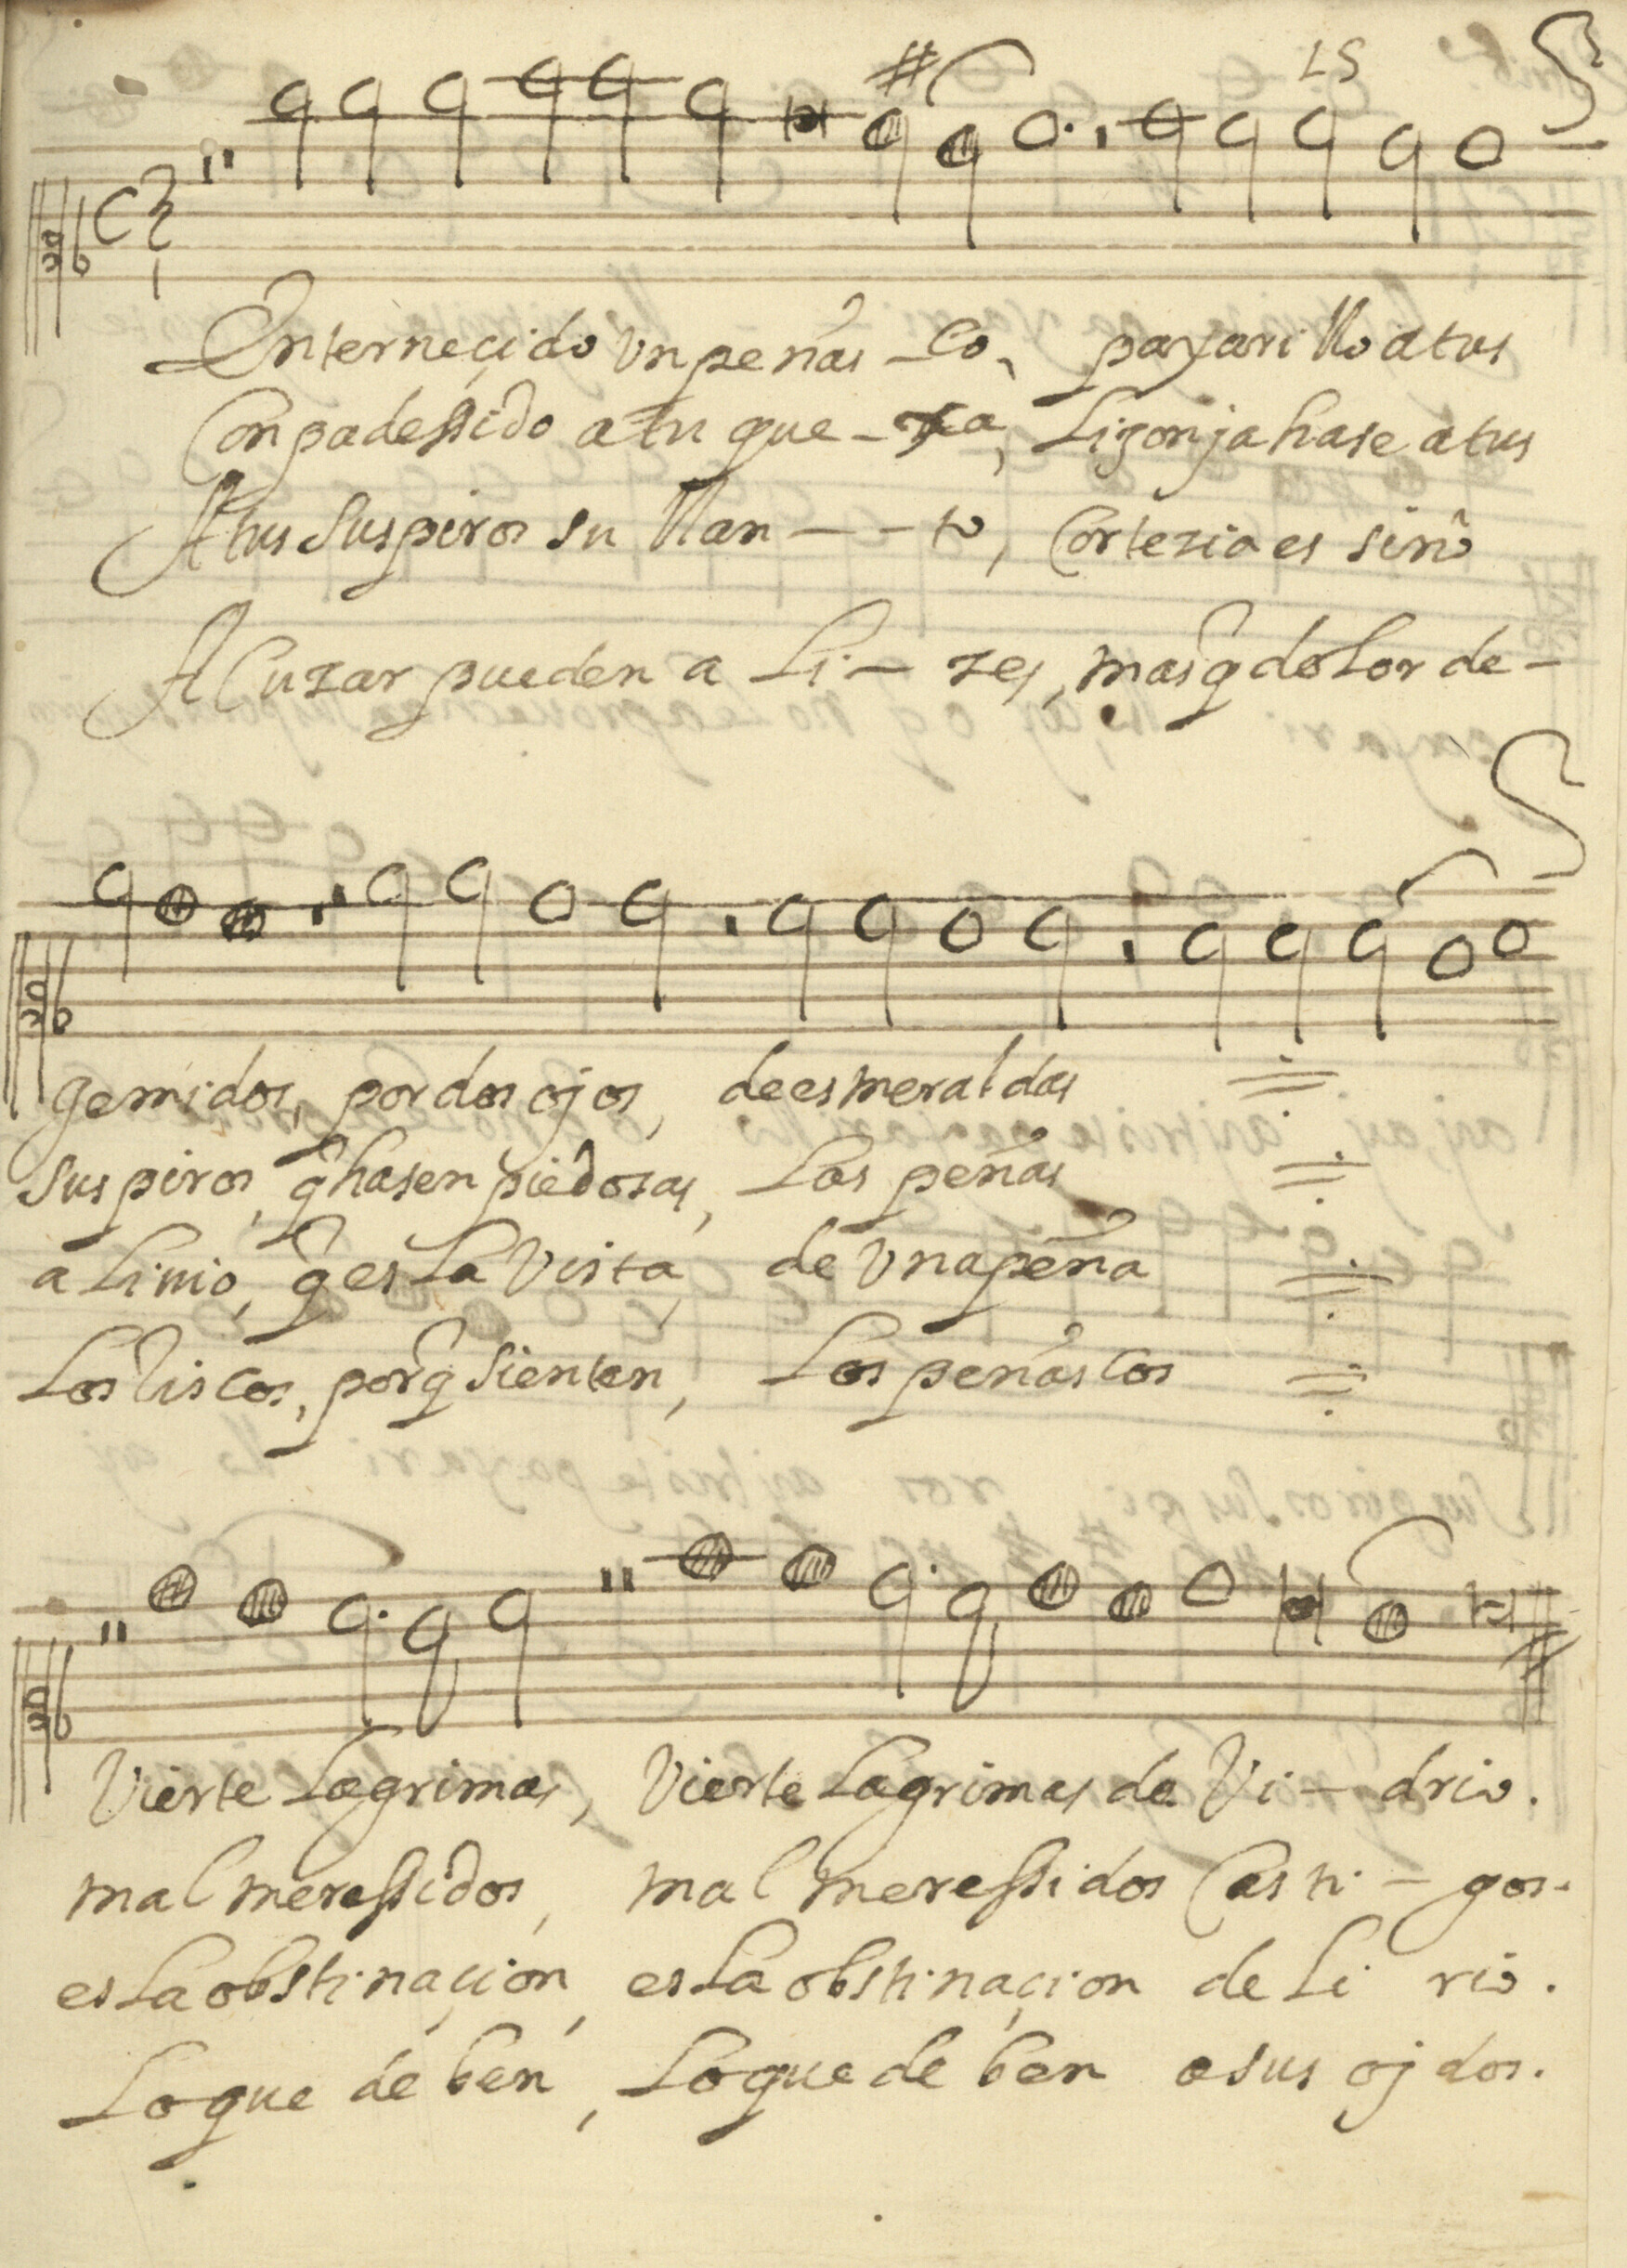 Enterneçido Vn peñas - co, paxarillo a tus
Conpadessido a tu que - xa, Lizonja hase a tus
A tus Suspiros su llan - - - to, Cortezia es sino
Acuzar pueden a Li - zes, mas q̃ dolor de -
gemidos, por dos ojos, de esmeraldas
Suspiros, q̃ hasen piedozas, Las peñas
a Liuio, q̃ es La Vista, de Vna peña
Los Riscos, porq̃ Sienten, Los peñascos
Vierte Lagrimas, Vierte Lagrimas de Vi - drio.
mal meressidos, mal meressidos Casti - gos.
es La obstinaçion, es La obstinaçion de Li rio.
Lo que deben, Lo que deben a sus ojdos.